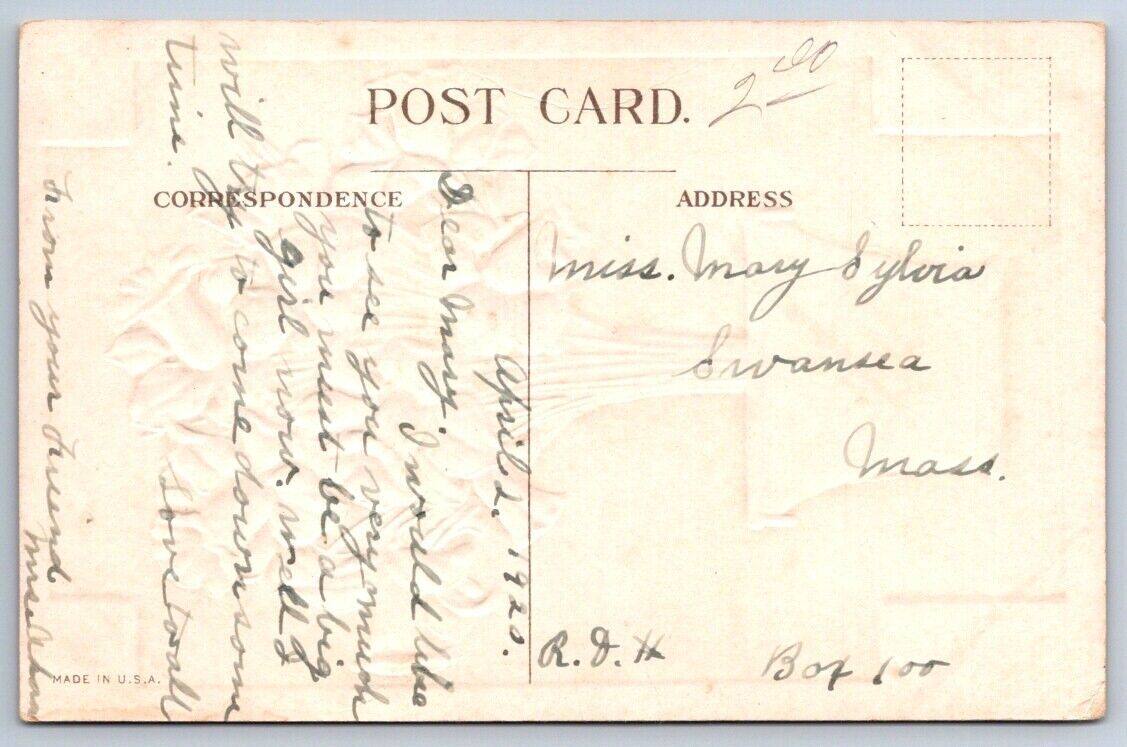 POST CARD.
2 00
CORRESPONDENCE
ADDRESS
April 2, 1920.
Dear Mary.
I would like
to see you very much
you must be a big
girl now. Well I
will try to come down some
time.
Love to all
From your friend
Miss
Miss. Mary Sylvia
Swansea
Mass.
R.D.
Box 100
MADE IN U.S.A.